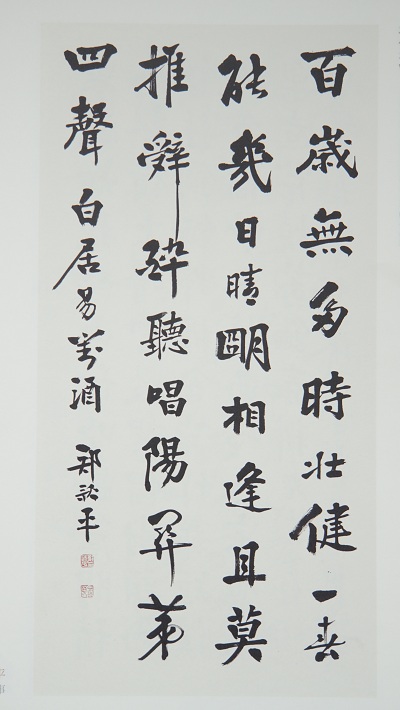 百歲無多時壯健一春
能幾日晴明相逢且莫
推辭醉聽唱陽關第
四聲 白居易對酒 郑平